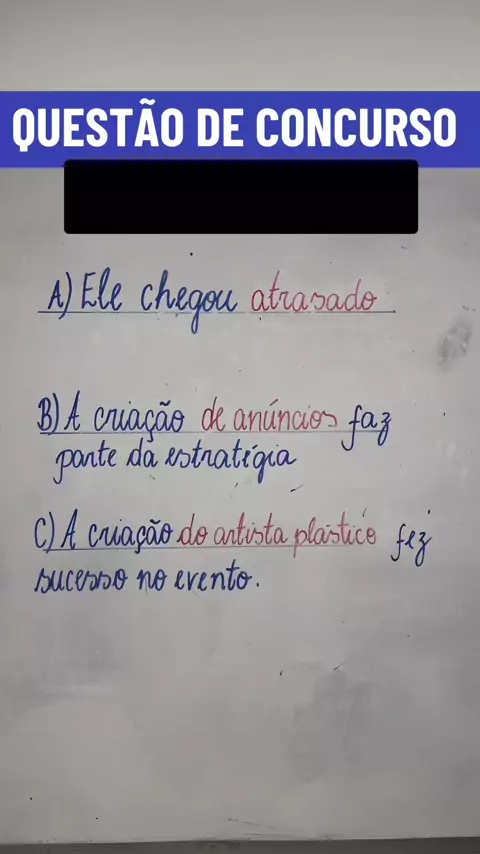 QUESTÃO DE CONCURSO
A) Ele chegou atrasado
B) A criação de anúncios faz
parte da estratégia
C) A criação do artista plástico fez
sucesso no evento.